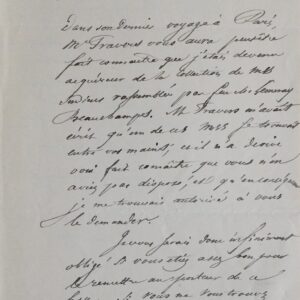 Dans son dernier voyage à Paris,
Mr Travers vous aura peut être
fait connaître que j'étais devenu
acquéreur de la Collection de Mss
rassemblés par feu Mr
Beauchamps. M. Travers m'avait
écrit qu'un de ces Mss se trouvait
entre vos mains; et il m'a
fait connaître que vous n'en
aviez pas disposé; et qu'en
je me trouvais autorisé à vous
le demander.
Je vous serais donc infiniment
obligé si vous étiez assez bon pour
remettre au porteur de ce
Si vous ne vous trouvez